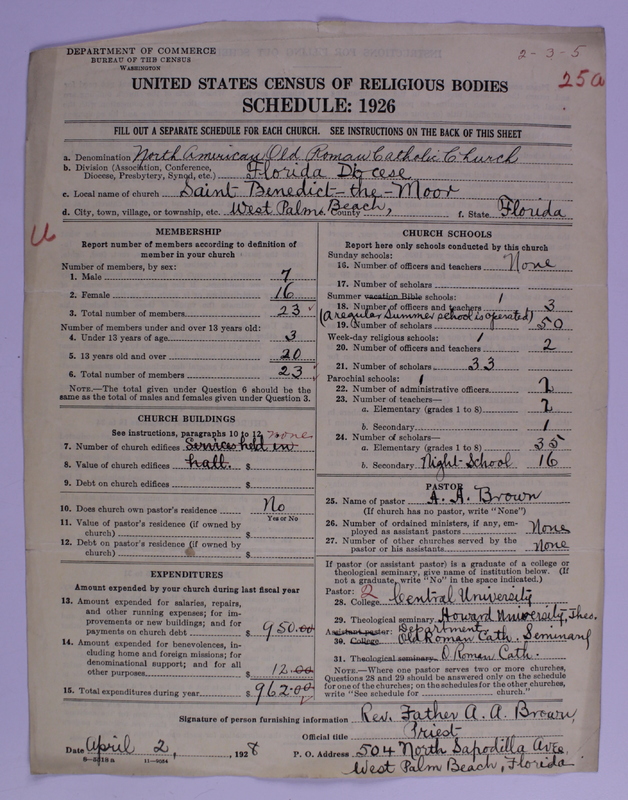 DEPARTMENT OF COMMERCE
BUREAU OF THE CENSUS
WASHINGTON
2-3-5
25a
UNITED STATES CENSUS OF RELIGIOUS BODIES
SCHEDULE: 1926
FILL OUT A SEPARATE SCHEDULE FOR EACH CHURCH. SEE INSTRUCTIONS ON THE BACK OF THIS SHEET
a. Denomination North American Old Roman Catholic Church
b. Division (Association, Conference, Diocese, Presbytery, Synod, etc.) Florida Diocese
c. Local name of church Saint Benedict-the-Moor
d. City, town, village, or township, etc. West Palm Beach, County f. State Florida
U
MEMBERSHIP
Report number of members according to definition of
member in your church
Number of members, by sex:
1. Male 7
2. Female 16
3. Total number of members 23
Number of members under and over 13 years old:
4. Under 13 years of age 3
5. 13 years old and over 20
6. Total number of members 23
NOTE.—The total given under Question 6 should be the
same as the total of males and females given under Question 3.
CHURCH BUILDINGS
See instructions, paragraphs 10 to 12 none
7. Number of church edifices Services held in
8. Value of church edifices hall. $
9. Debt on church edifices $
10. Does church own pastor's residence No
Yes or No
11. Value of pastor's residence (if owned by
church) $
12. Debt on pastor's residence (if owned by
church) $
EXPENDITURES
Amount expended by your church during last fiscal year
13. Amount expended for salaries, repairs,
and other running expenses; for im-
provements or new buildings; and for
payments on church debt $ 950.00
14. Amount expended for benevolences, in-
cluding home and foreign missions; for
denominational support; and for all
other purposes $ 12.00
15. Total expenditures during year $ 962.00
CHURCH SCHOOLS
Report here only schools conducted by this church
Sunday schools:
16. Number of officers and teachers None
17. Number of scholars
Summer vacation Bible schools: 1
18. Number of officers and teachers 3
(A regular Summer school is operated)
19. Number of scholars 50
Week-day religious schools: 1
20. Number of officers and teachers 2
21. Number of scholars 33
Parochial schools: 1
22. Number of administrative officers 2
23. Number of teachers—
a. Elementary (grades 1 to 8) 2
b. Secondary 1
24. Number of scholars—
a. Elementary (grades 1 to 8) 35
b. Secondary Night-School 16
PASTOR
25. Name of pastor A. A. Brown
(If church has no pastor, write "None")
26. Number of ordained ministers, if any, em-
ployed as assistant pastors None
27. Number of other churches served by the
pastor or his assistants None
If pastor (or assistant pastor) is a graduate of a college or
theological seminary, give name of institution below. (If
not a graduate, write "No" in the space indicated.)
Pastor: 2
28. College Central University
29. Theological seminary Howard University, Theo.
Department
Assistant pastor:
30. College Old Roman Cath. Seminary
31. Theological seminary O. Roman Cath.
NOTE.—Where one pastor serves two or more churches,
Questions 28 and 29 should be answered only on the schedule
for one of the churches; on the schedules for the other churches,
write "See schedule for church."
Signature of person furnishing information Rev. Father A. A. Brown,
Official title Priest
Date April 2, , 1928 P. O. Address 504 North Sapodilla Ave.
8—5518a 11—9054
West Palm Beach, Florida